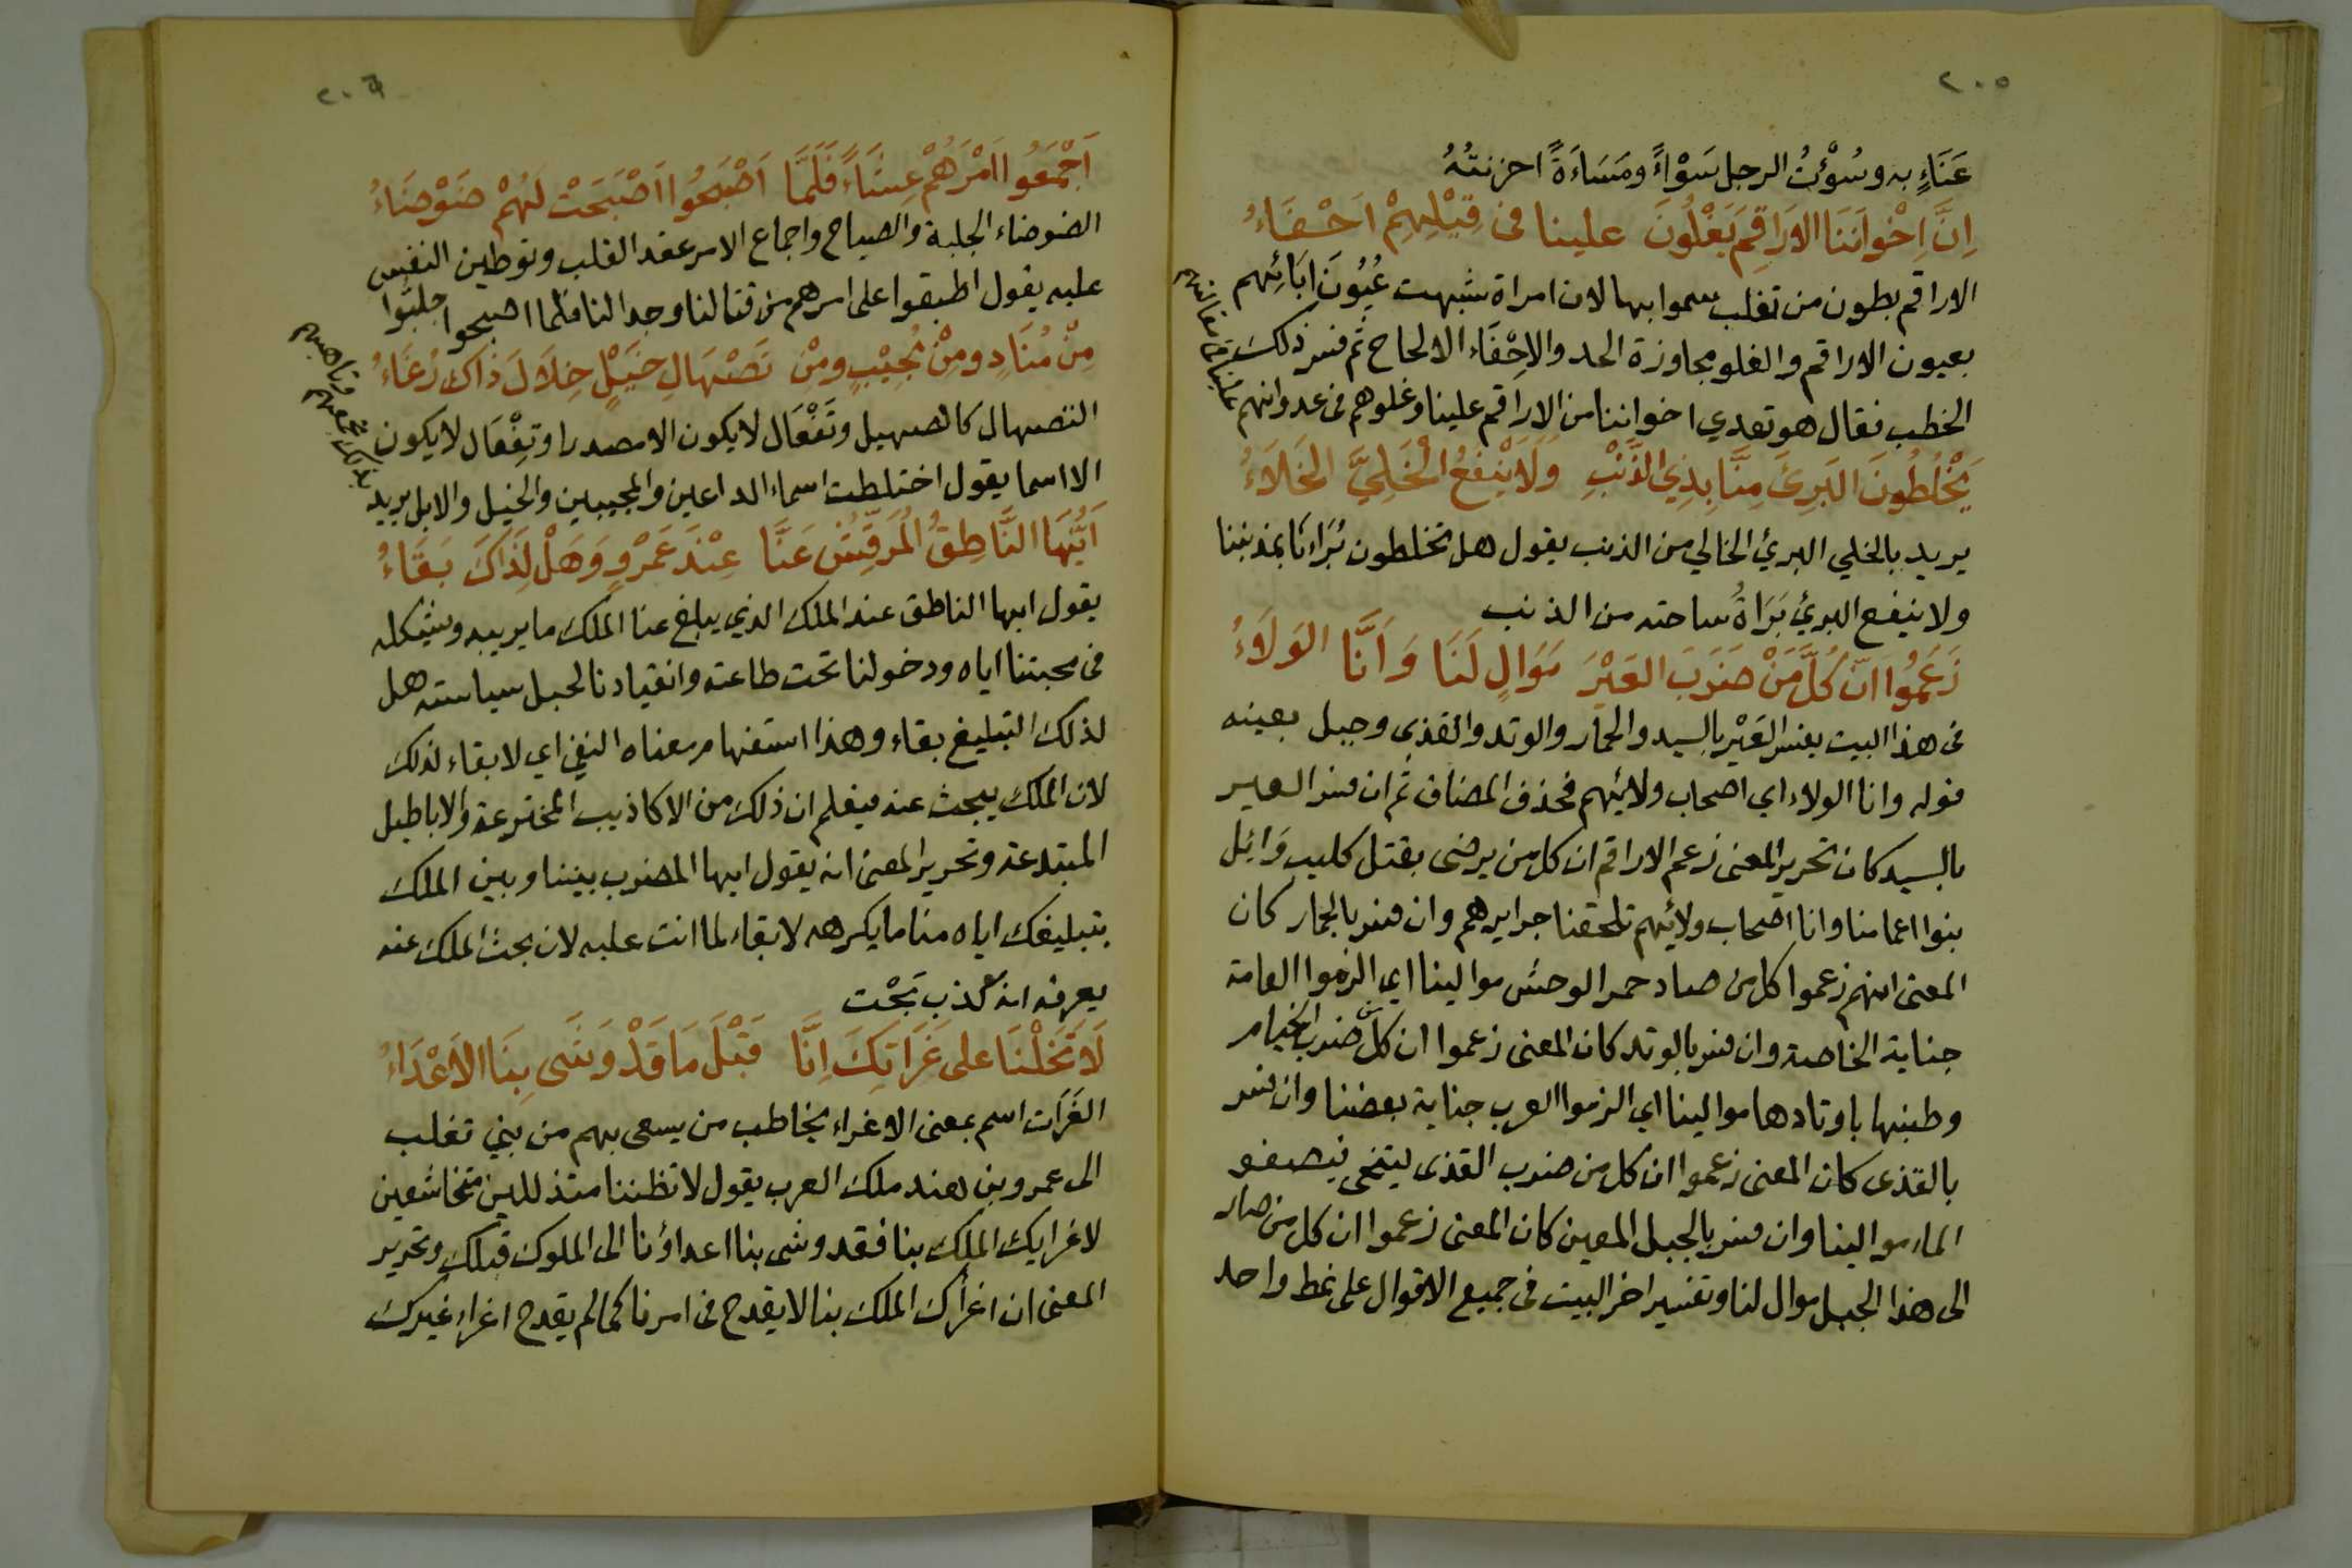 ٢٠٥
عَنَاءٍ به وسُؤْتُ الرجل سَوْاءً ومَسَاءَةً احزنتُهُ
اِنَّ اِخْوانَنَا الاَرَاقِمَ يَغْلُونَ علينا فى قِيْلِهِمْ اَحْفَاءُ
الاراقم بطون من تغلب سموا بها لان امراة شبهت عُيُونَ ابَائِهم
بعيون الاراقم والغلو مجاوزة الحد والاِحْفَاء الالحاح ثم فسر ذلك
الخطب فقال هو تعدي اخواننا من الاراقم علينا وغلوهم فى عدوانهم
علينا فى مقالتهم
يَخْلُطُونَ البَرِئَ مِنَّا بِذِي الذَّنْبِ وَلَا يَنْفَعُ الْخَلِيَّ الخَلَاءُ
يريد بالخلي البرئ الخالي من الذنب يقول هل تخلطون بُرَاءنَا بمذنبنا
ولا ينفع البرئ بَرَاةُ ساحته من الذنب
زَعَمُوا اَنَّ كُلَّ مَنْ ضَرَبَ العَيْرَ مَوَالٍ لَنَا وَاَنَّا الوَلَاءُ
فى هذا البيت يفسر العَيْر بالسيد والحمار والوتد والقذى وجبل بعينه
قوله وانا الولاء اي اصحاب ولائهم فحذف المضاف ثم ان فسر العير
بالسيد كان تحرير المعنى زعم الاراقم ان كل من يرضى بقتل كليب وَائِل
بنوا اعمامنا وانا اصحاب ولائهم تلحقنا جرايرهم وان فسر بالحمار كان
المعنى انهم زعموا كل من صاد حمر الوحش موالينا اي الزموا العامة
جناية الخاصة وان فسر بالوتد كان المعنى زعموا ان كل من ضرب الخيام
وطنبها باوتادها موالينا اي الزموا العرب جناية بعضنا وان فسر
بالقذى كان المعنى زعموا ان كل من ضرب القذى ليتنحى فيصفو
الماء موالينا وان فسر بالجبل المعين كان المعنى زعموا ان كل من صار
الى هذا الجبل موال لنا وتفسير اخر البيت فى جميع الاقوال على نمط واحد
٢٠٦
اَجْمَعُوا اَمْرَهُمْ عِشَاءً فَلَمَّا اَصْبَحُوا اَصْبَحَتْ لَهُمْ ضَوْضَاءُ
الضوضاء الجلبة والصياح واجماع الامر عقد القلب وتوطين النفس
عليه يقول اطبقوا على امرهم من قتالنا وجدالنا فلما اصبحوا جلبّوا
مِنْ مُنَادٍ ومِنْ مُجِيْبٍ ومْنِ تَصْهَالِ خَيْلٍ خِلَالَ ذَاكَ رُغَاءُ
التصهال كالصهيل وتَفْعَال لا يكون الا مصدرا وتِفْعَال لا يكون
الا اسما يقول اختلطت اسماء الداعين والمجيبين والخيل والابل يريد
بذلك تجمعهم وتاهبهم
اَيُّهَا النَّاطِقُ المُرَقِّشُ عَنَّا عِنْدَ عَمْرٍو وَهَلْ لِذَاكَ بَقَاءُ
يقول ايها الناطق عند الملك الذي يبلغ عنا الملك ما يريبه ويشككه
فى محبتنا اياه ودخولنا تحت طاعته وانقيادنا لحبل سياسته هل
لذلك التبليغ بقاء وهذا استفهام معناه النفي اي لا بقاء لذلك
لان الملك يبحث عنه فيعلم ان ذلك من الاكاذيب المخترعة والاباطيل
المبتدعة وتحرير المعنى انه يقول ايها المضرب بيننا وبين الملك
بتبليغك اياه منا ما يكرهه لا بقاء لما انت عليه لان بحث الملك عنه
يعرفه انه كذب بَحْت
لَا تَخَلْنَا على غَرَاتِكَ اِنَّا قَبْلَ مَا قَدْ وَشَى بِنَا الاَعْدَاءُ
الغَرَات اسم بمعنى الاغراء يخاطب من يسعى بهم من بني تغلب
الى عمرو بن هند ملك العرب يقول لا تظننا متذللين متخاشعين
لاغرايك الملك بنا فقد وشى بنا اعداؤنا الى الملوك قبلك وتحرير
المعنى ان اغرأك الملك بنا لا يقدح فى امرنا كما لم يقدح اغراء غيرك